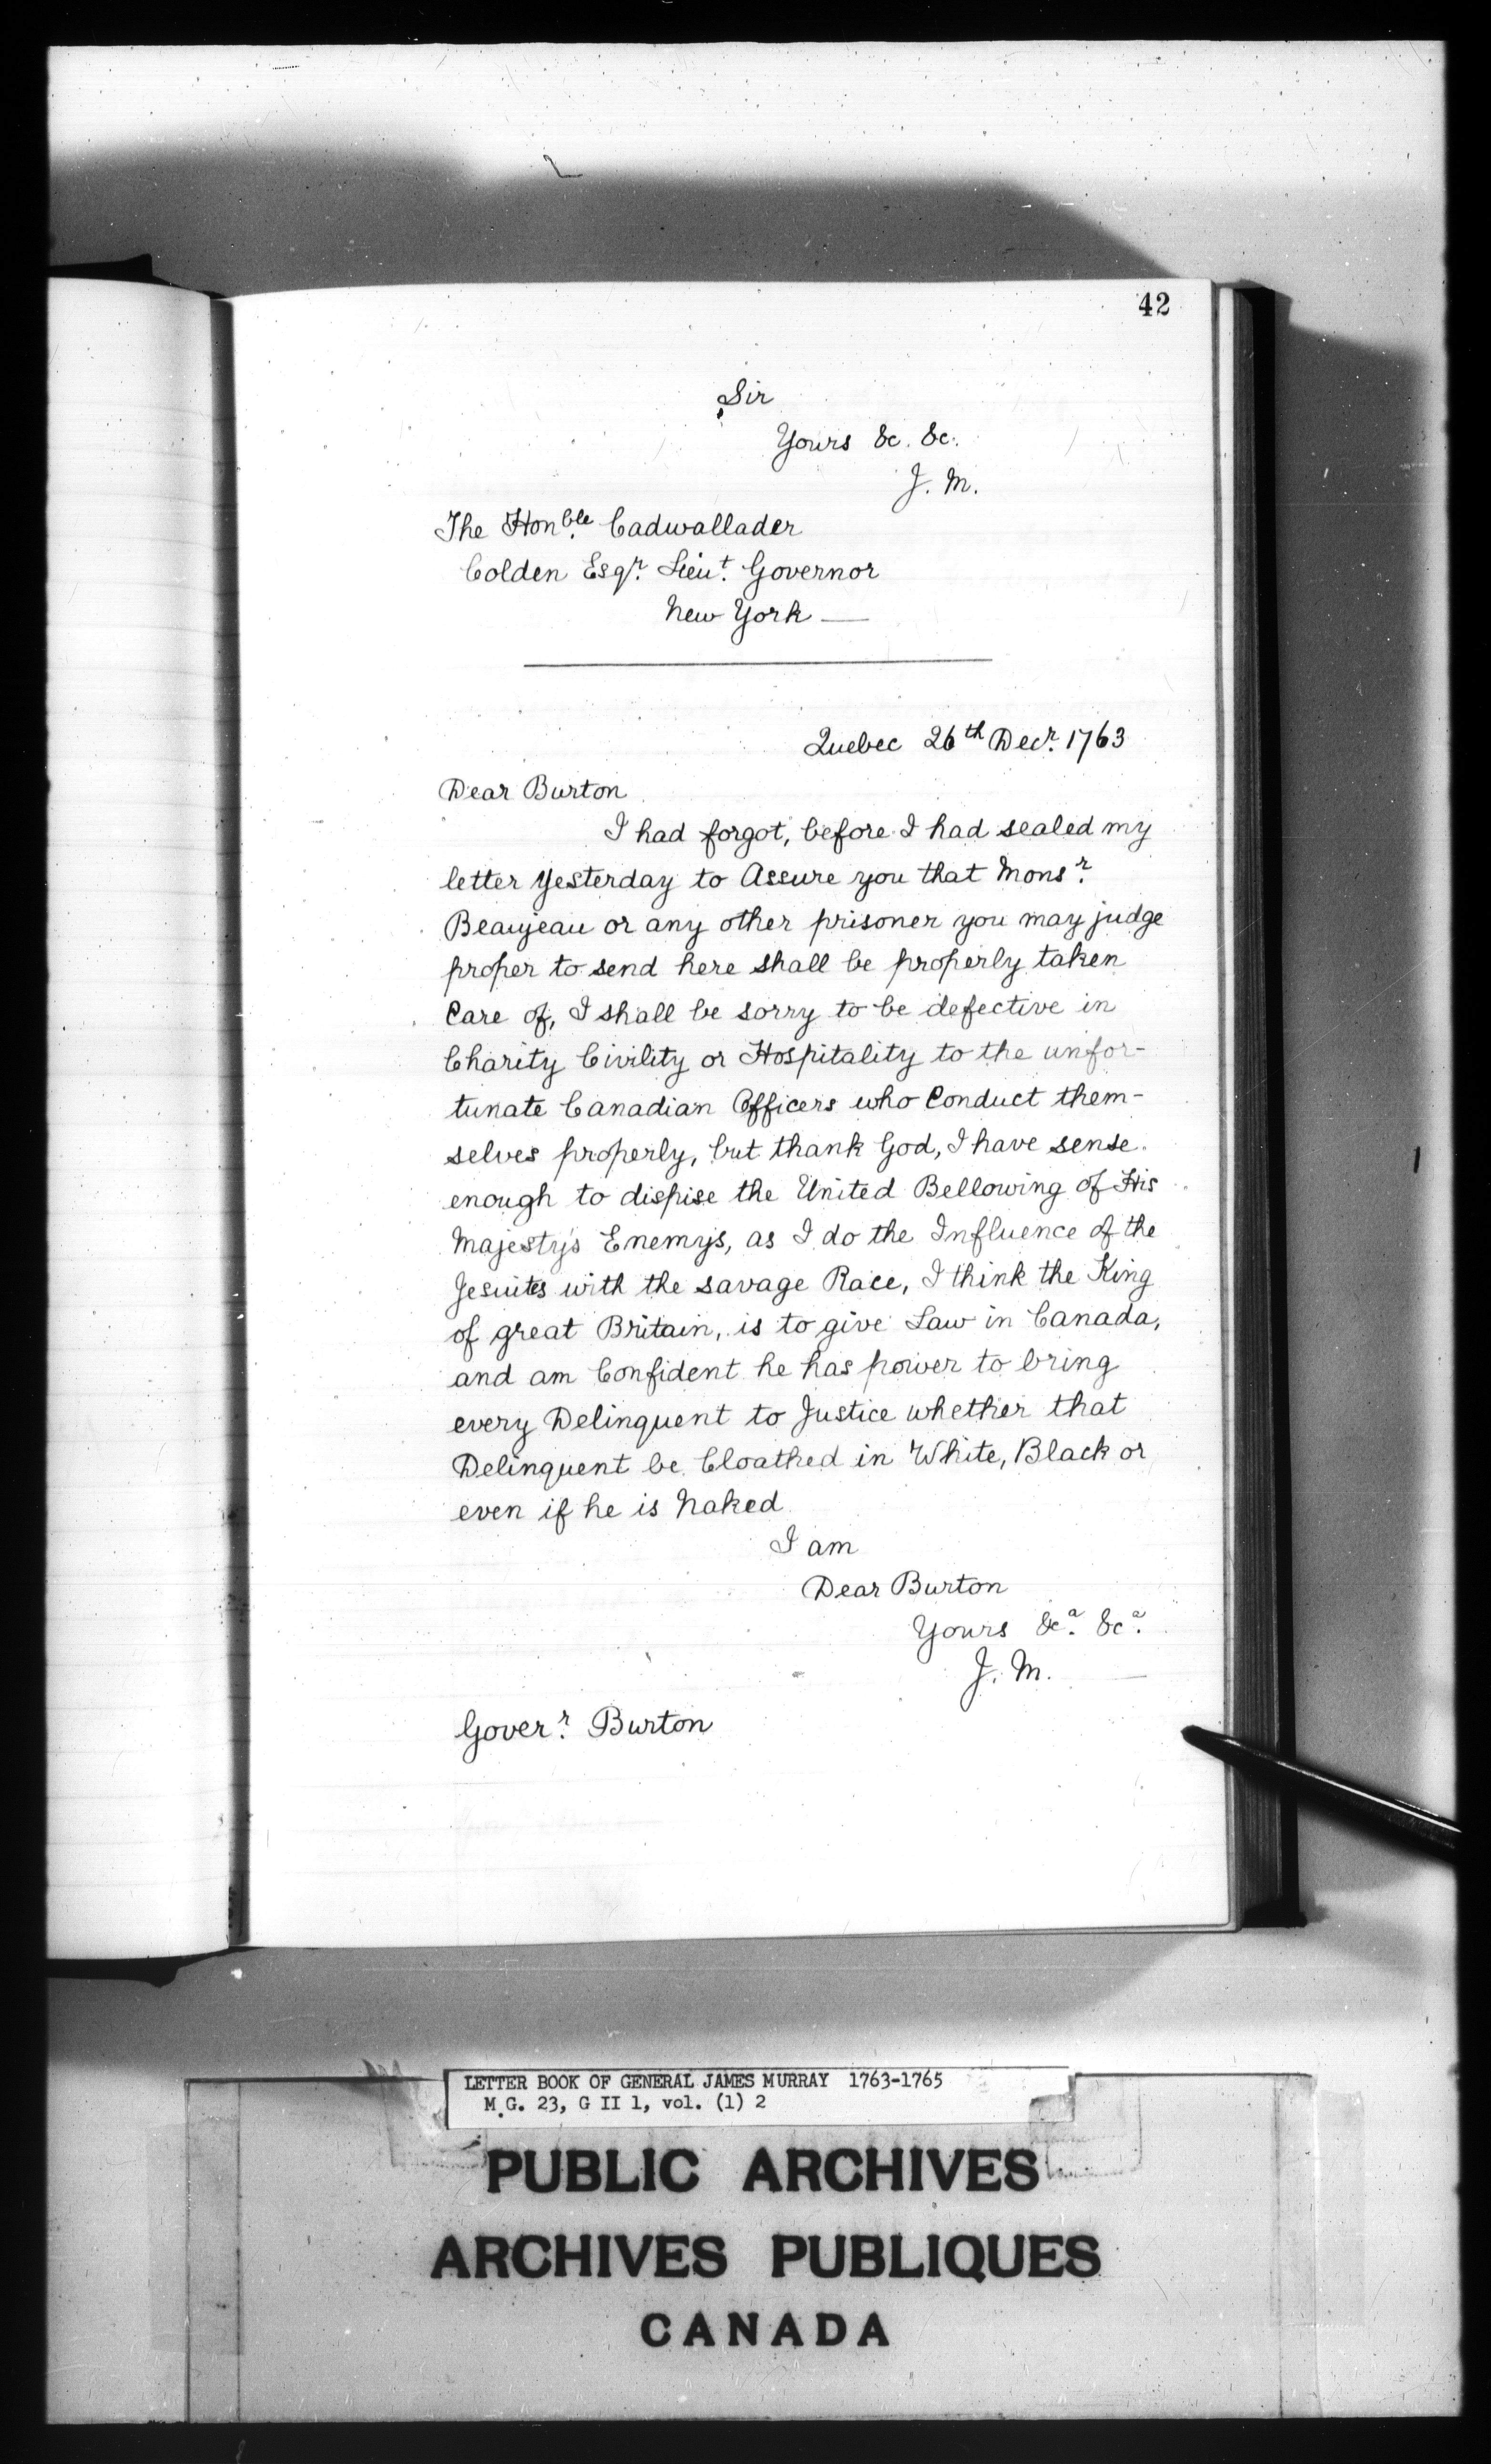 42
Sir
Yours &c. &c.
J. M.
The Honble. Cadwallader
Colden Esqr. Lieut. Governor
New York —
Quebec 26th Decr. 1763
Dear Burton
I had forgot, before I had sealed my
letter Yesterday to Assure you that Monsr.
Beaujeau or any other prisoner you may judge
proper to send here shall be properly taken
Care of, I shall be sorry to be defective in
Charity Civility or Hospitality to the unfor-
tunate Canadian Officers who Conduct them-
selves properly, but thank God, I have sense
enough to dispise the United Bellowing of His
Majesty's Enemys, as I do the Influence of the
Jesuites with the savage Race, I think the King
of great Britain, is to give Law in Canada,
and am Confident he has power to bring
every Delinquent to Justice whether that
Delinquent be Cloathed in White, Black or
even if he is Naked
I am
Dear Burton
Yours &ca. &ca.
J. M.
Goverr. Burton
LETTER BOOK OF GENERAL JAMES MURRAY 1763-1765
M.G. 23, G II 1, vol. (1) 2
PUBLIC ARCHIVES
ARCHIVES PUBLIQUES
CANADA